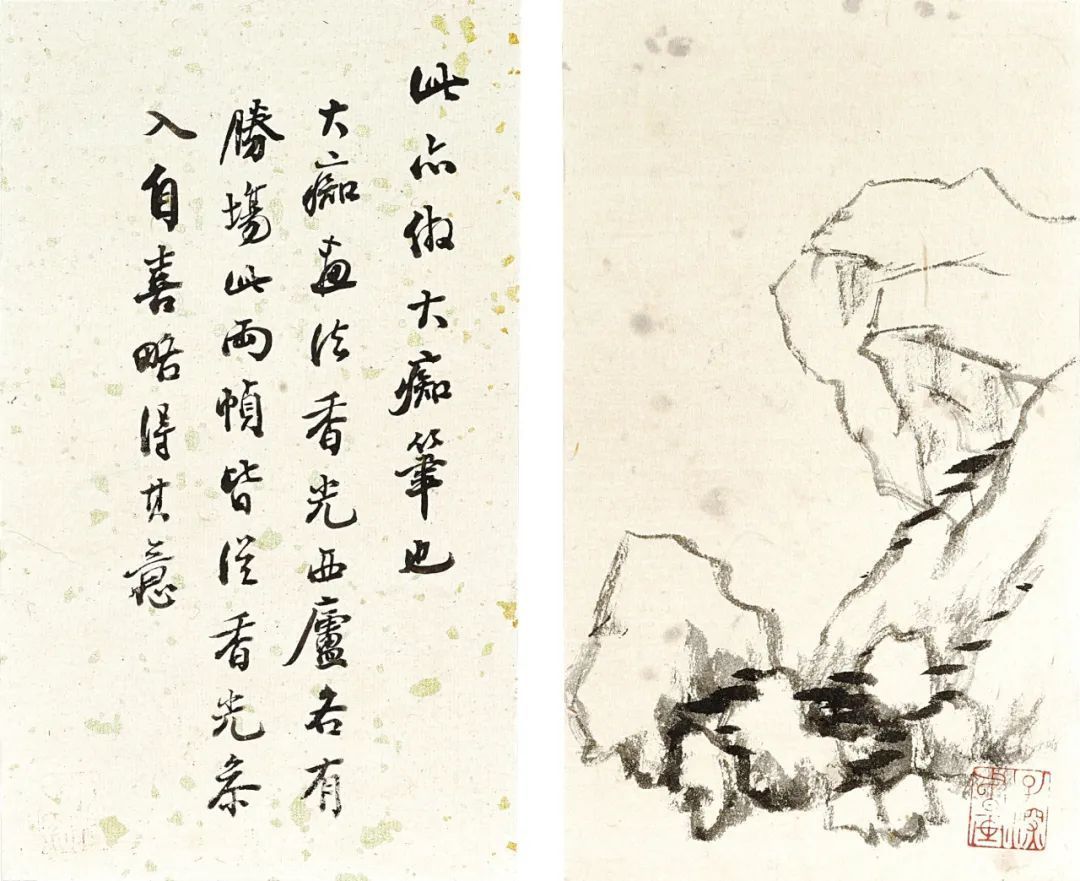 此亦倣大痴筆也
大痴畫法香光西廬各有
勝塲此兩幀皆從香光叅
入自喜略得其意